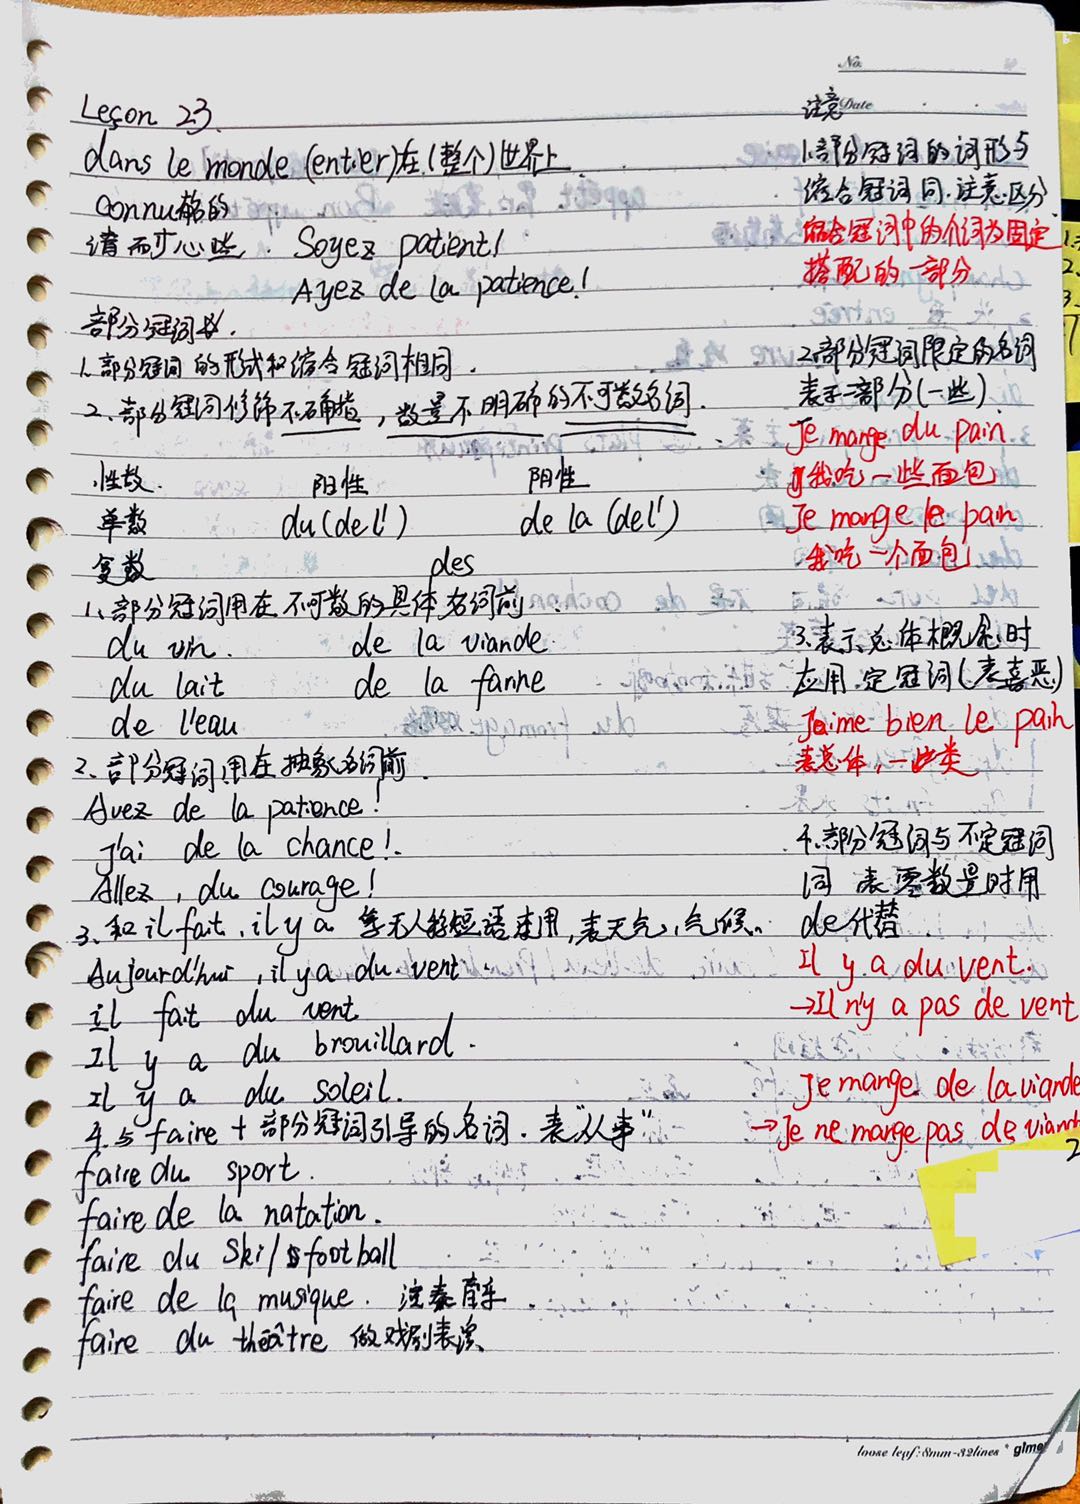 No.
Date
Leçon 23.
dans le monde (entier)在(整个)世界上
connu 的
请耐心些. Soyez patient!
Ayez de la patience!
部分冠词
1. 部分冠词的形式和缩合冠词相同.
2. 部分冠词修饰不确指,数量不明确的不可数名词.
性数. 阳性 阴性
单数 du(del') de la (del')
复数 des
1. 部分冠词用在不可数的具体名词前
du vin. de la viande.
du lait de la farine
de l'eau
2. 部分冠词用在抽象名词前.
Avez de la patience!
J'ai de la chance!
Allez, du courage!
3. 和il fait, il y a 等无人称短语连用,表天气,气候.
Aujourd'hui, il y a du vent
il fait du vent
Il y a du brouillard.
Il y a du soleil.
4. 与faire + 部分冠词引导的名词. 表"从事"
faire du sport.
faire de la natation.
faire du ski/football
faire de la musique.
faire du théâtre 做戏剧表演
注意
1.部分冠词的词形与
缩合冠词同.注意区分
缩合冠词中的介词为固定
搭配的一部分
2.部分冠词限定的名词
表示一部分(一些)
Je mange du pain
我吃一些面包
Je mange le pain
我吃一个面包
3.表示总体概念时
应用定冠词(表喜恶)
J'aime bien le pain
表总体,一些类
4.部分冠词与不定冠词
词 表零数量时用
de代替
Il y a du vent.
→Il n'y a pas de vent
Je mange de la viande
→Je ne mange pas de viande
2
loose leaf:8mm-32lines * glme